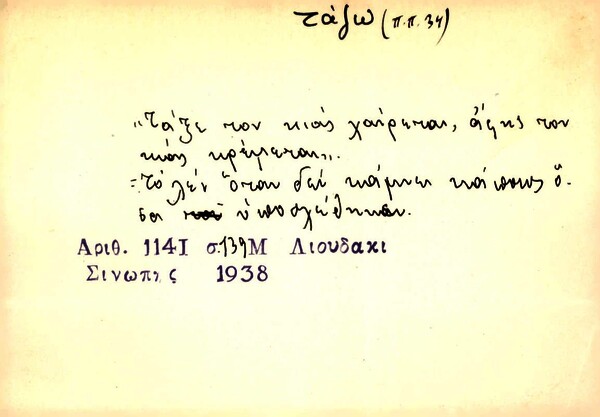 τάζω (π.π. 34)
"Τάξε τον κιας χαίρεται, άφης τον
κιας κρέμεται".
=Το λέν όταν δεί κάμνει κάποιος ό-
σα υποσχέθηκεν.
Αριθ. 1141 σ.139 Μ Λιουδακι
Σινωπης 1938